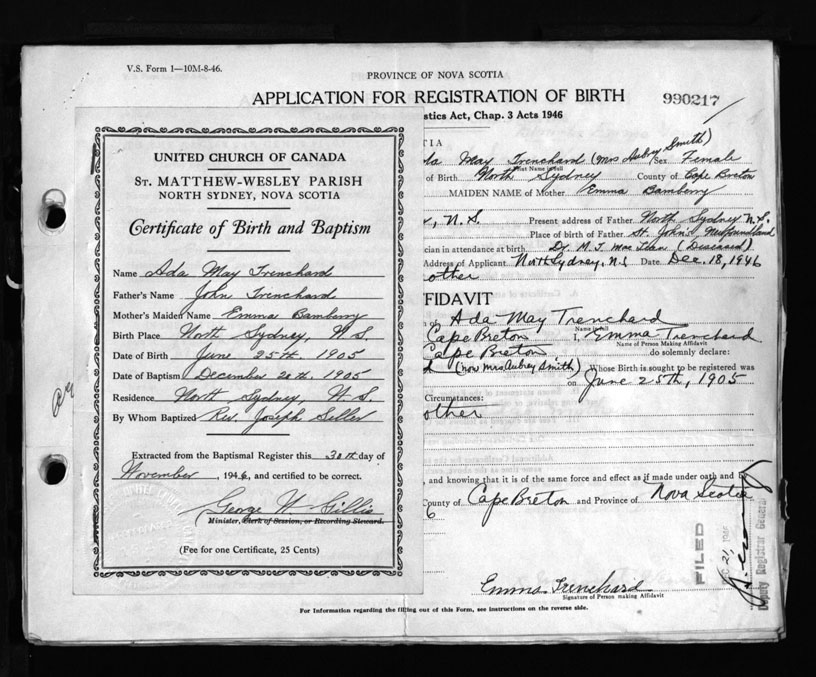 V.S. Form 1—10M-8-46.
PROVINCE OF NOVA SCOTIA
APPLICATION FOR REGISTRATION OF BIRTH
990217
stics Act, Chap. 3 Acts 1946
UNITED CHURCH OF CANADA
ST. MATTHEW-WESLEY PARISH
NORTH SYDNEY, NOVA SCOTIA
Certificate of Birth and Baptism
Name Ada May Trenchard
Father's Name John Trenchard
Mother's Maiden Name Emma Bamberry
Birth Place North Sydney, N.S.
Date of Birth June 25th, 1905
Date of Baptism December 20th, 1905
Residence North Sydney, N.S.
By Whom Baptized Rev. Joseph Seller
Extracted from the Baptismal Register this 30th day of
November, 1946, and certified to be correct.
George W Gillis
Minister, Clerk of Session, or Recording Steward.
(Fee for one Certificate, 25 Cents)
TIA
da May Trenchard (Mrs Aubrey Smith) Sex Female
Print Name in full
of Birth North Sydney County of Cape Breton
MAIDEN NAME of Mother Emma Bamberry
N.S. Present address of Father North Sydney N.S.
Place of birth of Father St. John's Newfoundland
cian in attendance at birth Dr. M. T. MacLean (Diseased)
Address of Applicant North Sydney, N.S Date Dec. 18, 1946
other
FFIDAVIT
Ada May Trenchard
Name in full
Cape Breton I, Emma Trenchard
Name of Person Making Affidavit
Cape Breton do solemnly declare:
d (now Mrs Aubrey Smith) Whose Birth is sought to be registered was
on June 25th, 1905
Circumstances:
other
, and knowing that it is of the same force and effect as if made under oath and
County of Cape Breton and Province of Nova Scotia
6
FILED
21, 194
Deputy Registrar General
Emma Trenchard
Signature of Person making Affidavit
For Information regarding the filling out of this Form, see instructions on the reverse side.